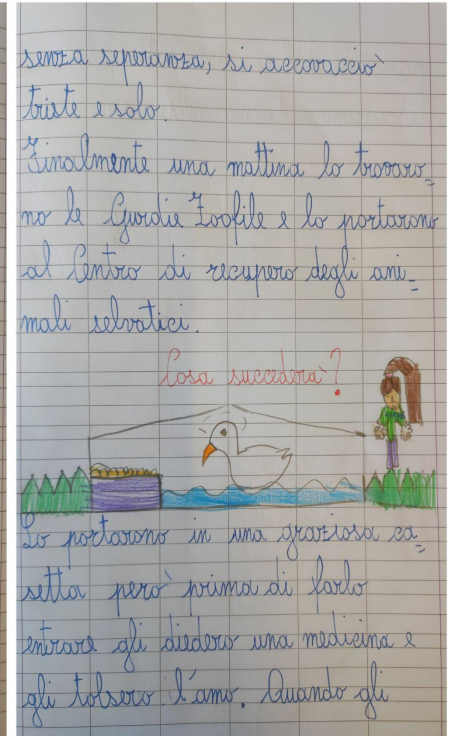 senza seperanza, si accovacciò
triste e solo.
Finalmente una mattina lo trovaro=
no le Guardie Zoofile e lo portarono
al Centro di recupero degli ani=
mali selvatici.
Cosa succederà?
Lo portarono in una graziosa ca=
setta però prima di farlo
entrare gli diedero una medicina e
gli tolsero l'amo. Quando gli